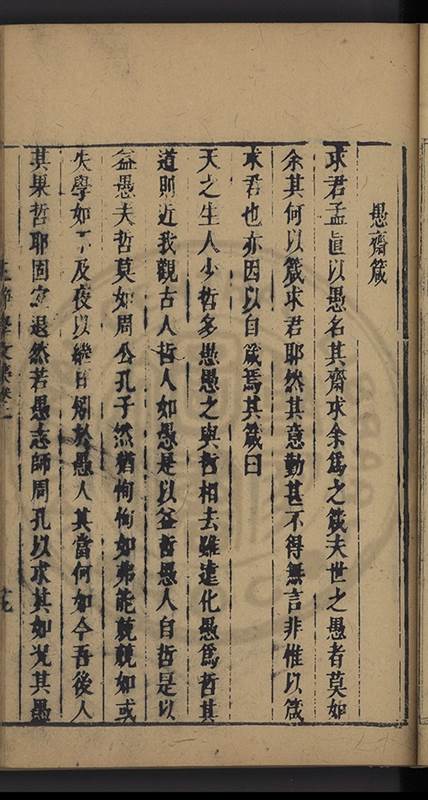 愚齋箴
求君孟眞以愚名其齋求余爲之箴夫世之愚者莫如
余其何以箴求君耶然其意勤甚不得無言非惟以箴
求君也亦因以自箴焉其箴曰
天之生人少哲多愚愚之與哲相去雖遠化愚爲哲其
道則近我觀古人哲人如愚是以益哲愚人自哲是以
益愚夫哲莫如周公孔子然猶恂恂如弗能兢兢如或
失學如不及夜以繼日矧於愚人其當何如今吾後人
其果哲耶固宜退然若愚志師周孔以求其如况其愚
文集卷二